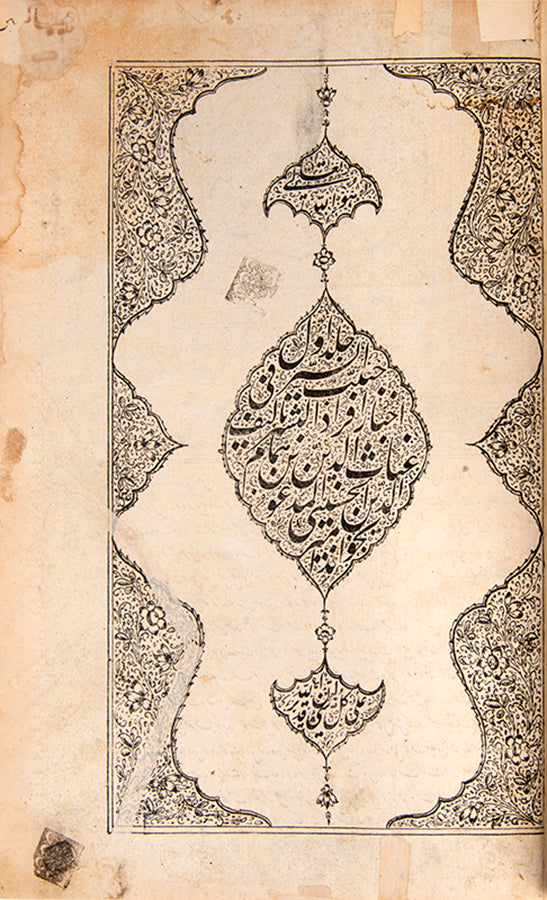 هو الله تعالی
جلد اول
حبیب السیر فی
اخبار افراد البشر تالیف
غیاث الدین بن همام
الدین الحسینی المدعو
بخواند امیر
ان الله علی کل شی قدیر